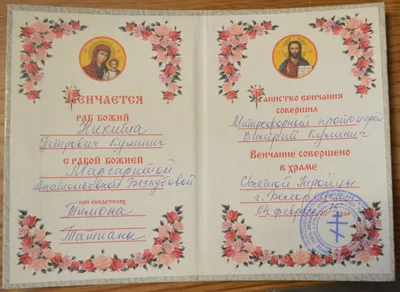 Венчается
раб Божий
Никита
Петрович Кулинич
с рабой Божией
Маргаритой
Анатольевной Безъудовой
при свидетелях
Тимона
Татианы
Таинство венчания
совершил
Митрофорный протоиерей
Валерий Кулинич
Венчание совершено
в храме
Святой Троицы
г. Белорецка
04 февраля